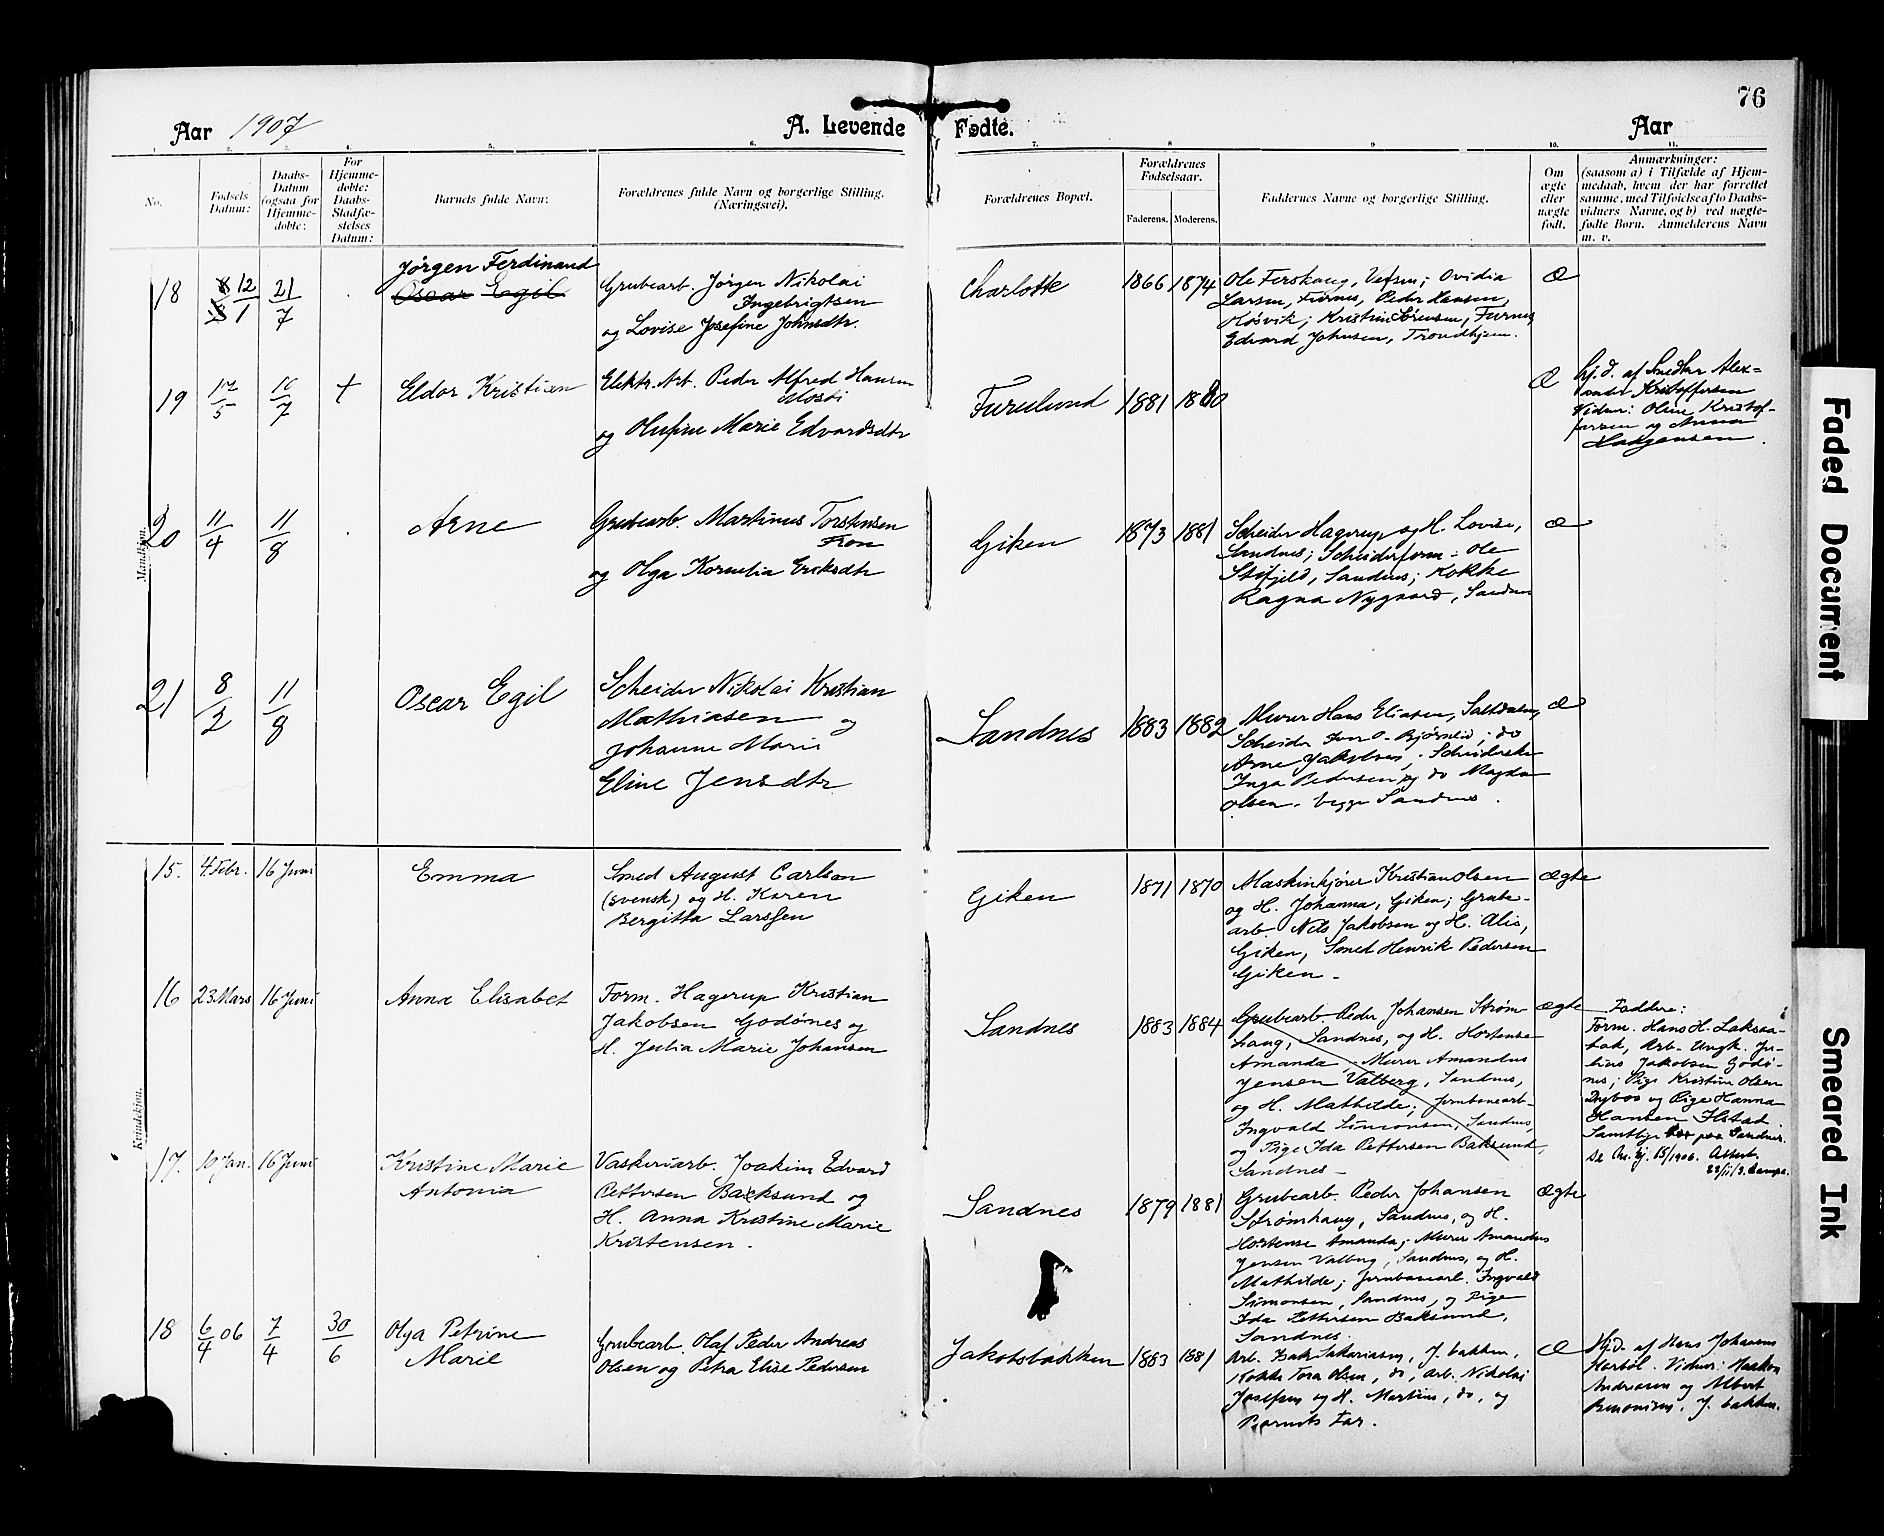 76
Aar 1907
A. Levende Fødte.
Aar
1. 2. 3. 4. 5. 6. 7. 8 9 10. 11.
No.
Fødsels Datum:
Daabs-
Datum
(ogsaa for
Hjemme-
døbte:
For
Hjemme-
døbte:
Daabs-
Stadfæ-
stelses
Datum:
Barnets fulde Navn:
Forældrenes fulde Navn og borgerlige Stilling.
(Næringsvei).
Forældrenes Bopæl.
Forældrenes
Fødselsaar.
Faderens. Moderens.
Faddernes Navne og borgerlige Stilling.
Om
ægte
eller
uægte
født.
Anmærkninger:
(saasom a) i Tilfælde af Hjem-
medaab, hvem der har forrettet
samme, med Tilføielse af to Daabs-
vidners Navne, og b) ved uægte-
fødte Børn. Anmelderens Navn
m. v.
Mandkjøn.
18
12
1
21/7
Jørgen Ferdinand
Oscar Egil
Grubearb. Jørgen Nikolai
Ingebrigtsen
og Lovise Josefine Johnsdtr.
Charlotte
1866 1874
Ole Ferskaug, Vefsen; Ovidia
Larsen, Furnes, Peder Hansen,
Kosvik; Kristine Sørensen, Furnes,
Edvard Johnsen, Trondhjem.
Æ
19
17/5
/7
+
Eldor Kristian
Elektr. Arb. Peder Alfred Hansen
Mosti
og Olufine Marie Edvardsdtr
Furulund
1881 1880
Æ
Hj.d. af Snedker Alex-
ander Kristoffersen
Vidner: Oline Kristof-
fersen og Anna
20
11/4
11/8
Arne
Grubearb. Martinus Torstensen
Fron
og Olga Kornelia Eriksdtr
Giken
1873 1881
Scheider Hagerup og H. Lovise,
Sandnes; Scheiderform. Ole
Stifjeld, Sandnes; Kokke
Ragna Nygaard, Sandnes
Æ
21
8/2
11/8
Oscar Egil
Scheider Nikolai Kristian
Mathiasen og
Johanne Marie
Eline Jensdtr
Sandnes
1883 1882
Murer Hans Eliasen, Saltdalen,
Scheider Iver O. Bjørneid; do
Arne Jakobsen; Scheiderske
Inga Pedersen og do Magda
Olsen. begge Sandnes.
Æ
Kvindekjøn.
15.
4. Febr.
16 Juni
Emma
Smed August Carlson
(svensk) og H. Karen
Bergitta Larssen
Giken
1871 1870
Maskinkjører Kristian Olsen
og H. Johanna, Giken; Grube-
arb. Nils Jakobsen og H. Alis,
Giken, Smed Henrik Pedersen
Giken -
Ægte
16
23. Mars
16 Juni
Anna Elisabet
Form. Hagerup Kristian
Jakobsen Godønes og
H. Julia Marie Johansen
Sandnes
1883 1884
Grubearb. Peder Johansen Strøm-
haug, Sandnes, og H. Hortense
Amanda, Murer Amandus
Jensen Valberg, Sandnes,
og H. Mathilde; Jernbanearb-
Ingvald Simonsen, Sandnes
og Pige Ida Pettersen Baksund,
Sandnes -
Ægte
Faddere:
Form. Hans H. Laksaa-
bak, Arb. Ungk. Ju-
lius Jakobsen Godø-
nes; Pige Kristine Olsen
og Pige Hanna
Hansen
Samtlige paa Sandnes.
17.
10 Jan.
16 Juni
Kristine Marie
Antonia
Vaskeriarb. Joakim Edvard
Pettersen Baksund og
H. Anna Kristine Marie
Kristensen.
Sandnes
1879 1881
Grubearb. Peder Johansen
Strømhaug, Sandnes, og H.
Hortense Amanda; Murer Amandus
Jensen Valberg, Sandnes, og H.
Mathilde; Jernbanearb. Ingvald
Simonsen, Sandnes, og Pige
Ida Pettersen Baksund,
Sandnes.
Ægte
18
6/4 06
7/4
30/6
Olga Petrine
Marie
Grubearb. Olaf Peder Andreas
Olsen og Petra Elise Pedersen
Jakobsbakken
1883 1881
Arb. Isak Sakariasen, J. bakken,
Kokke Tora Olsen, do, Arb. Nikolai
Josefsen og H. Martine, do, og
Barnets Far.
Æ
Hj.d. af Hans Johansen
Vidner: Haakon
Andreasen og Albert
J. bakken.
Faded Document
Smeared Ink